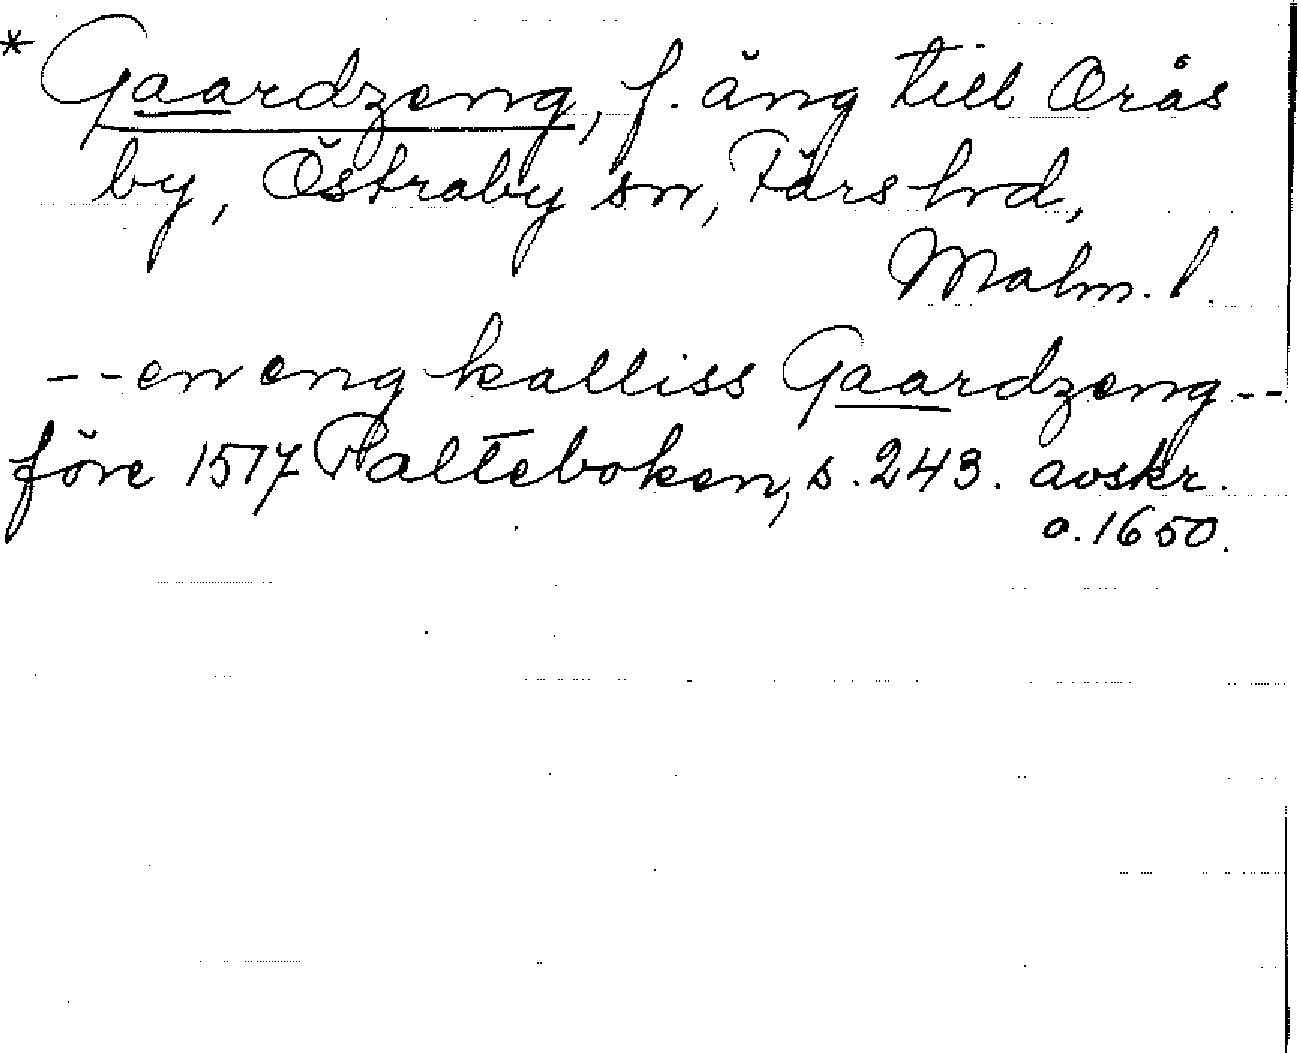 * Gaardzeng, f. äng till Orås
by, Östraby sn, Färs hd,
Malm. l.
-- en eng kalliss Gaardzeng --
före 1517 Palteboken, s. 243. avskr.
o. 1650.